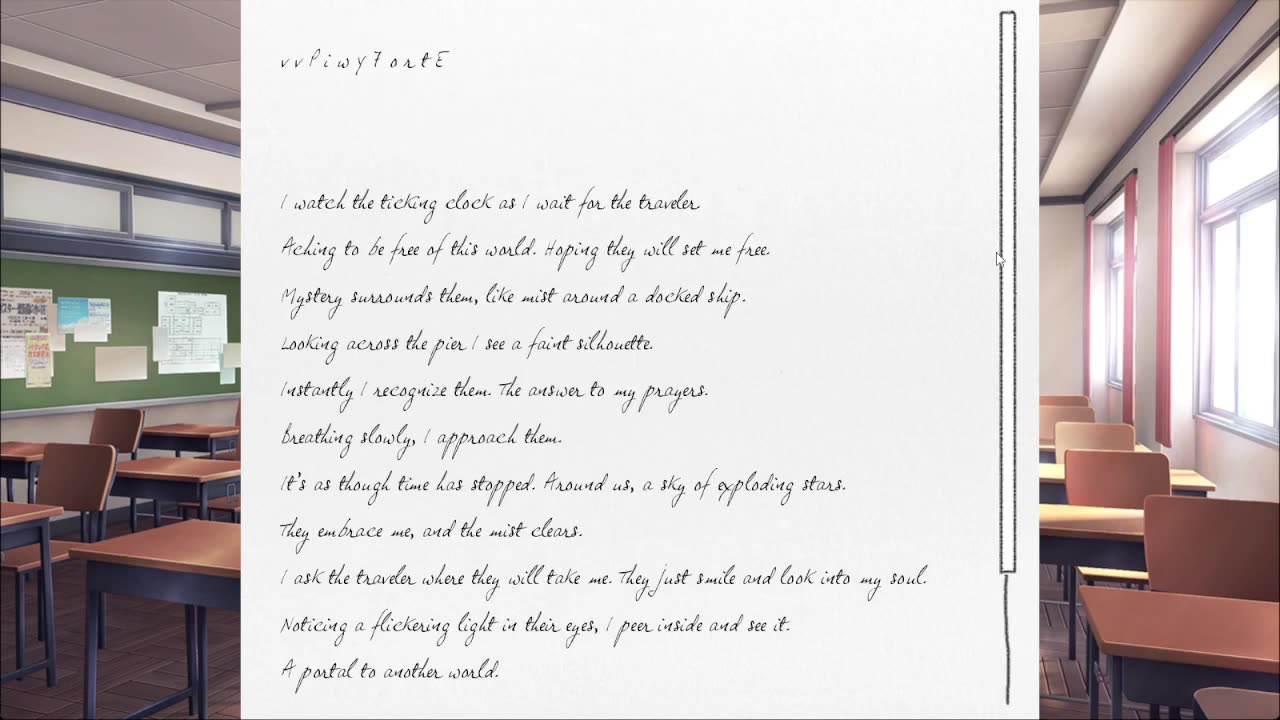 v v P i w y 7 o r t E
I watch the ticking clock as I wait for the traveler
Aching to be free of this world. Hoping they will set me free.
Mystery surrounds them, like mist around a docked ship.
Looking across the pier I see a faint silhouette.
Instantly I recognize them. The answer to my prayers.
Breathing slowly, I approach them.
It's as though time has stopped. Around us, a sky of exploding stars.
They embrace me, and the mist clears.
I ask the traveler where they will take me. They just smile and look into my soul.
Noticing a flickering light in their eyes, I peer inside and see it.
A portal to another world.